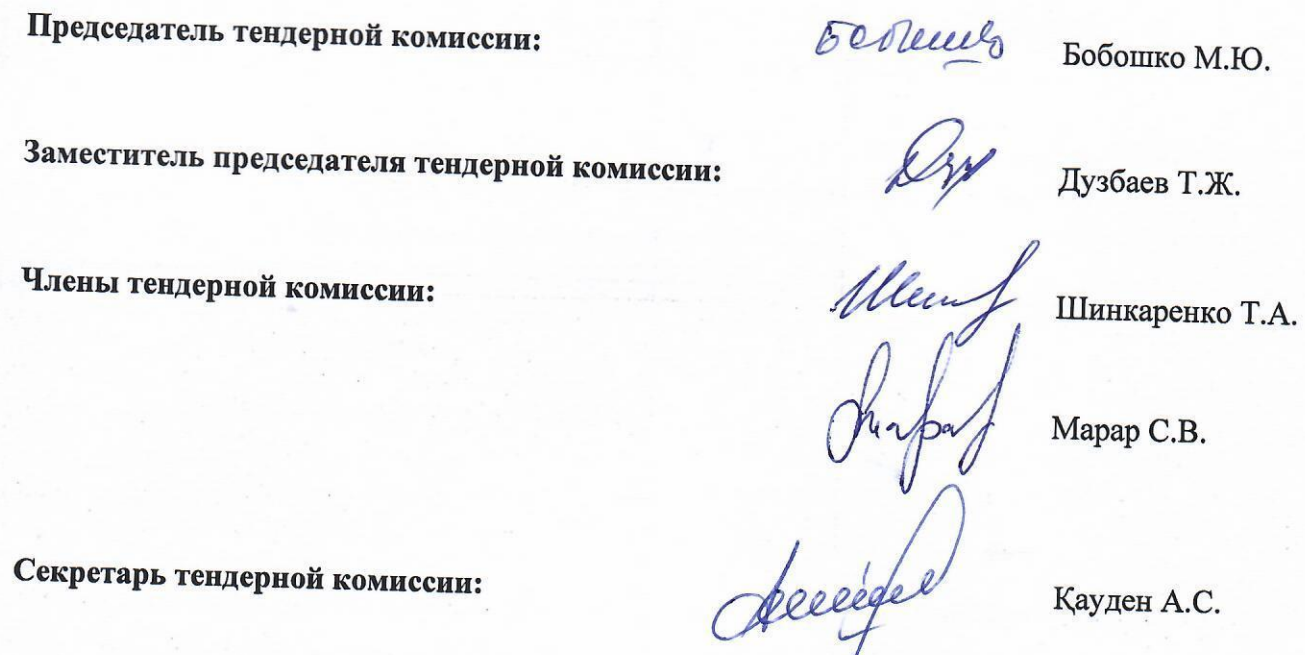 Председатель тендерной комиссии: Бобошко М.Ю.
Заместитель председателя тендерной комиссии: Дузбаев Т.Ж.
Члены тендерной комиссии: Шинкаренко Т.А.
Марар С.В.
Секретарь тендерной комиссии: Қауден А.С.